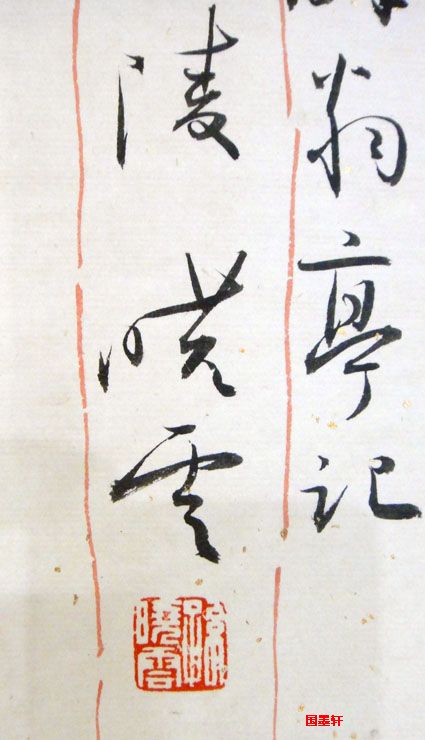 翁亭记
陵晓云
晓云
国墨轩